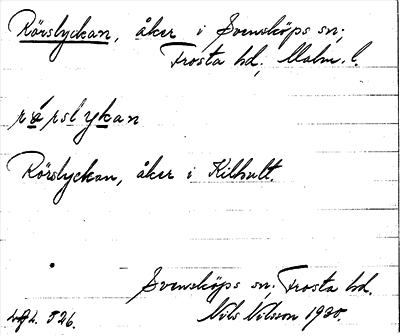 Rörslyckan, åker i Svensköps sn;
Frosta hd; Malm. l.
Rörslyckan, åker i Kilhult.
Svensköps sn. Frosta hd.
Nils Nilsson 1920.
526.